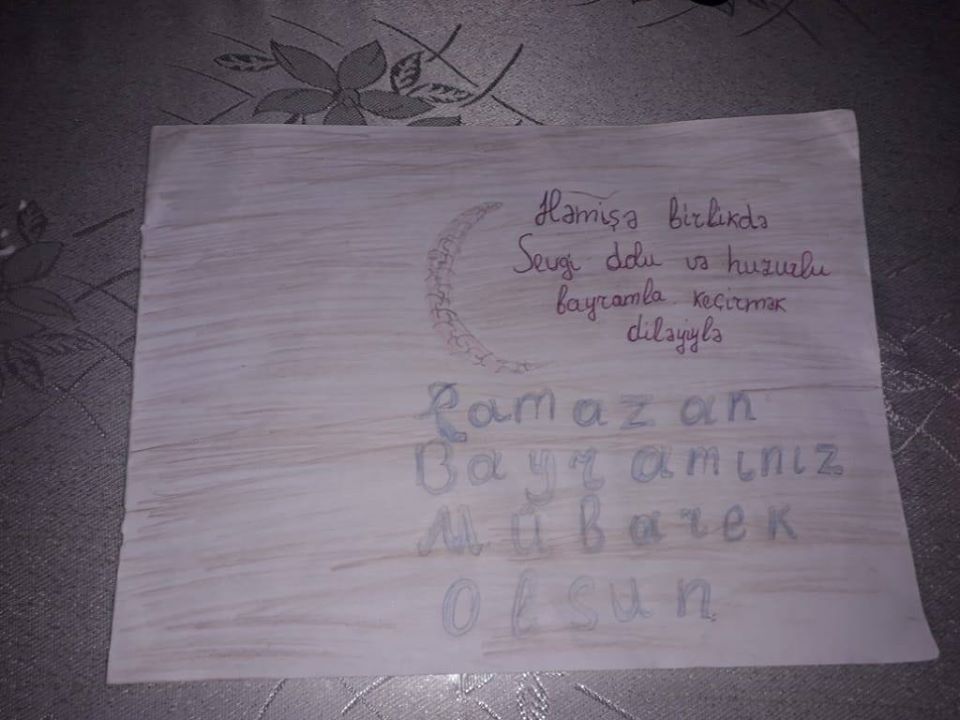 Həmişə birlikdə
Sevgi dolu və huzurlu
bayramla keçirmək
diləyiylə
Ramazan
Bayramınız
Mübarek
Olsun